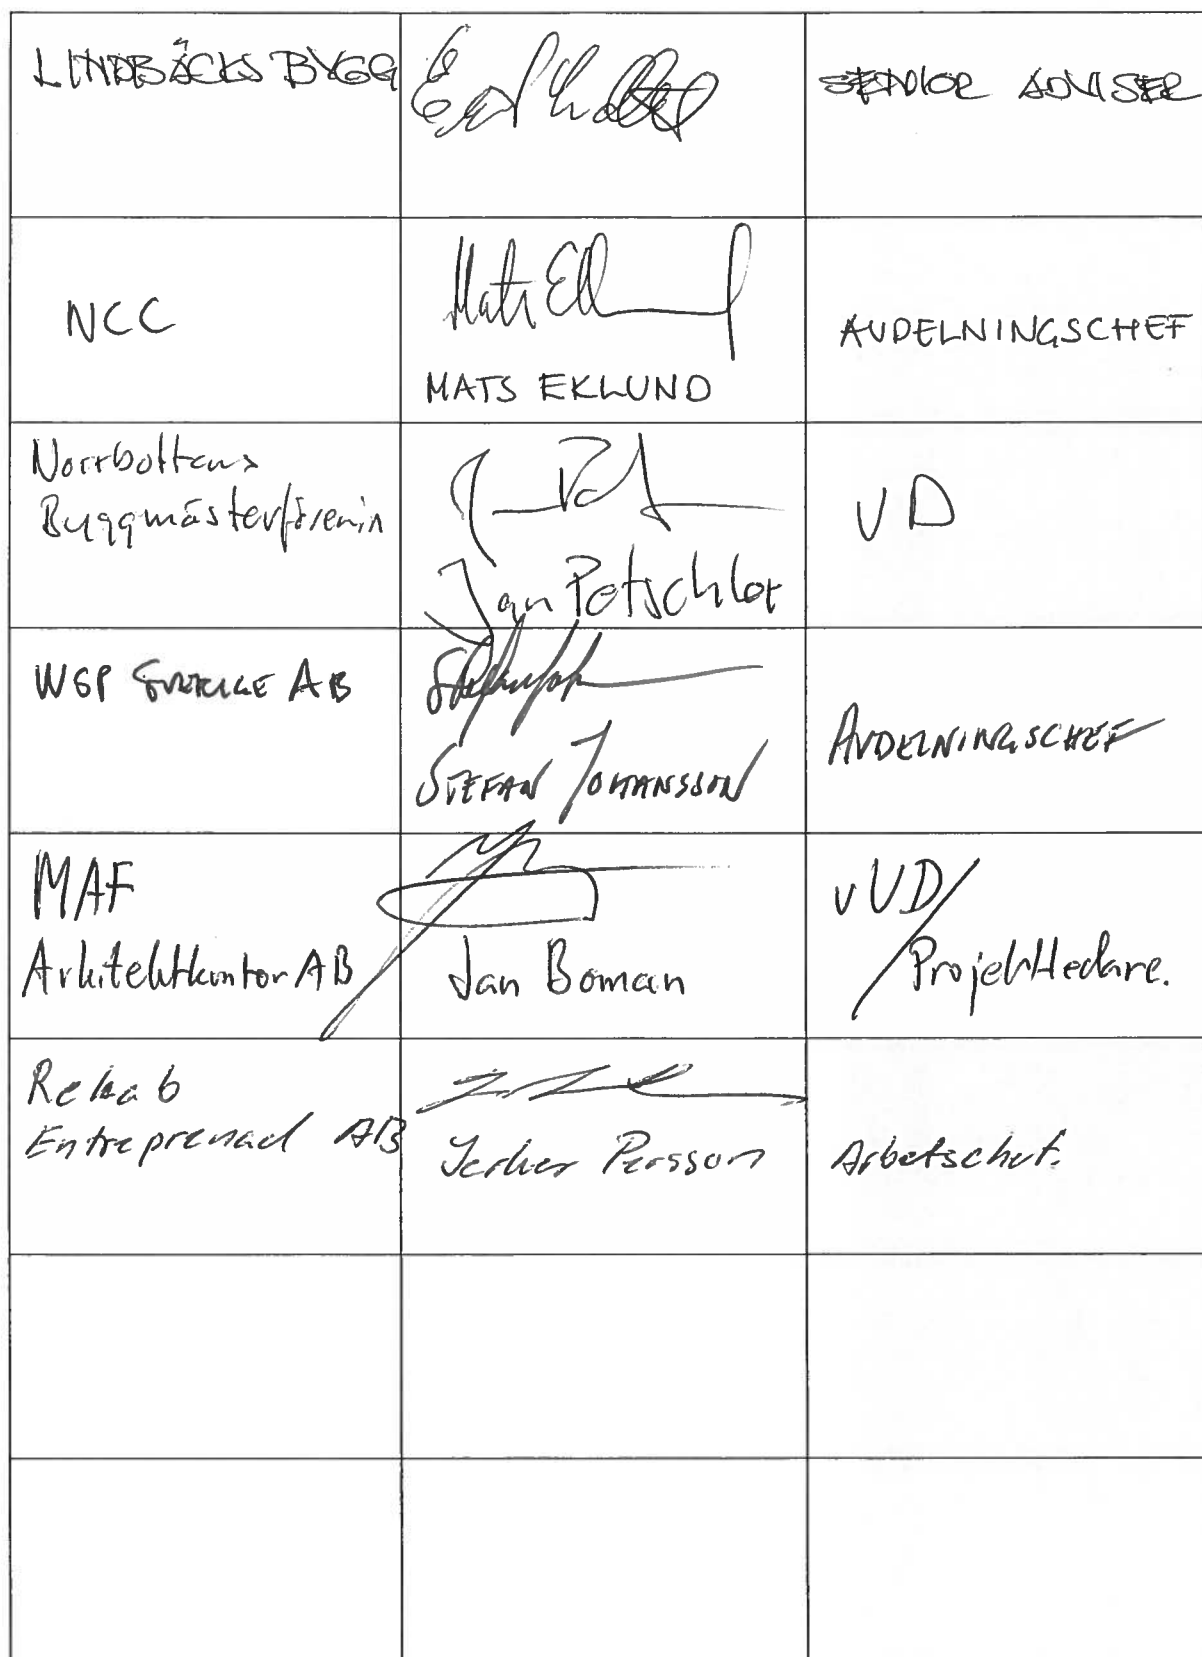 LINDBÄCKS BYGG
SENIOR ADVISER
NCC
MATS EKLUND
AVDELNINGSCHEF
Norrbottens
Byggmästerförenin
Jan Potschler
VD
WSP SVERIGE AB
STEFAN JOHANSSON
AVDELNINGSCHEF
MAF
Arkitektkontor AB
Jan Boman
vVD/
Projektledare.
Rekab
Entreprenad AB
Jerker Persson
Arbetschef.